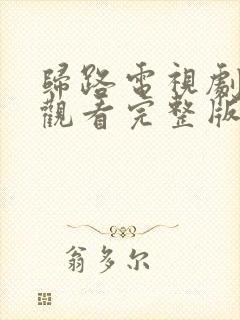 歸路電視劇
觀看完整版
翁多尔